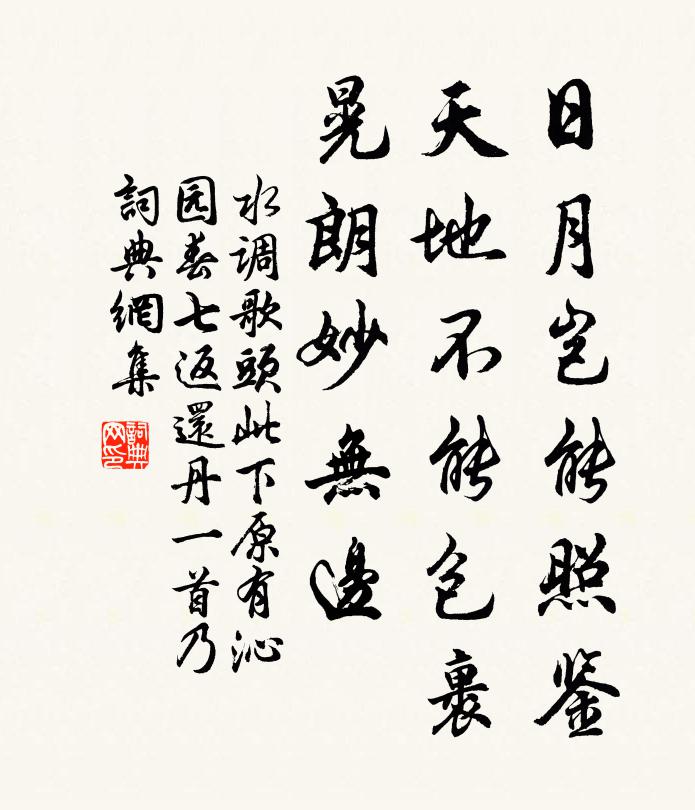 日月岂能照鉴
天地不能包裹
晃朗妙無邊
水调歌頭此下原有沁
园春七返還丹一首乃
詞典網集
詞典
网印